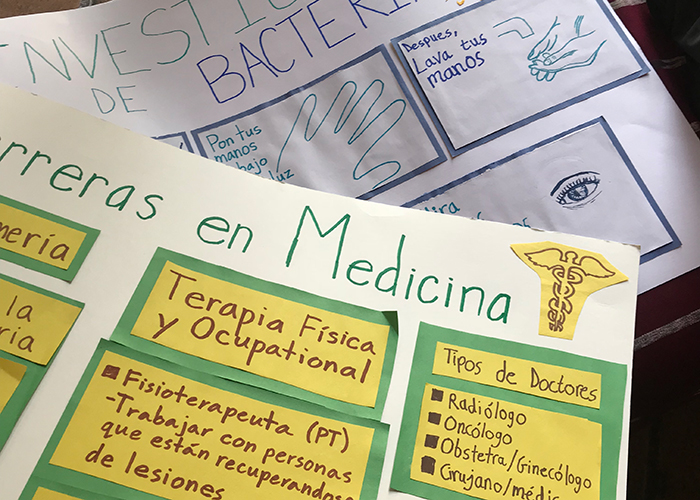 INVESTIG
DE BACTERIA
Despues,
Lava tus
manos
Pon tus
manos
bajo
luz
rreras en Medicina
mería
la
ria
Terapia Física
y Ocupational
Fisioterapeuta (PT)
-Trabajar con personas
que están recuperandose
de lesiones
Tipos de Doctores
Radiólogo
Oncólogo
Obstetra/Ginecólogo
Cirujano/médic